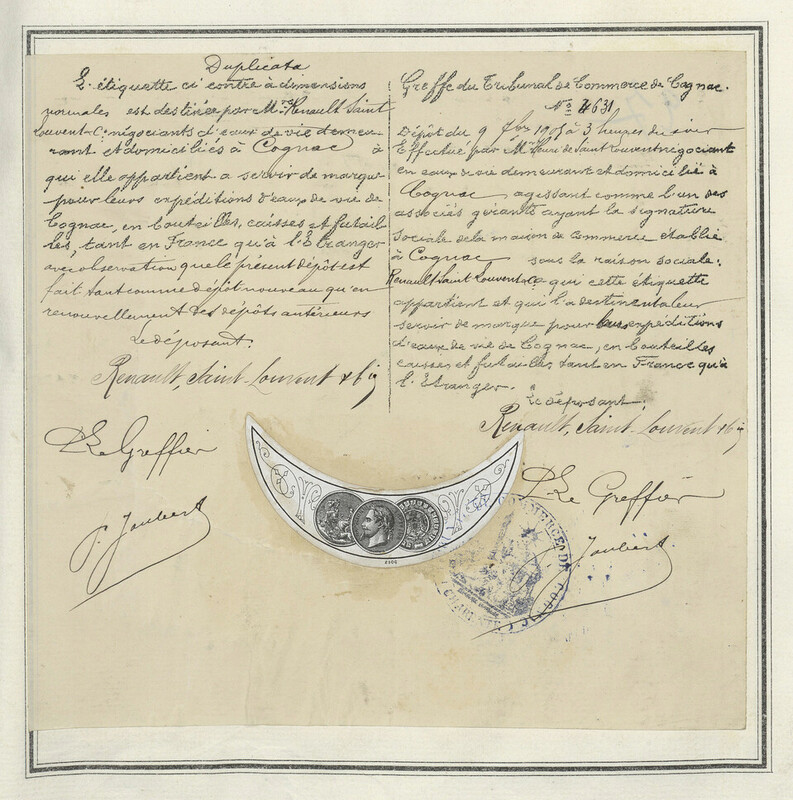 Duplicata
L'étiquette ci contre à dimensions
normales est destinée par Mrs Renault Saint
Louvent & Cie négociants d'eaux de vie demeu-
rant et domiciliés à Cognac à
qui elle appartient a servir de marque
pour leurs expéditions d'eaux de vie de
Cognac, en bouteilles, caisses et futail-
les, tant en France qu'à l'Étranger
avec observation que le présent dépôt est
fait tant comme dépôt nouveau qu'en
renouvellement des dépôts antérieurs
Le déposant.
Renault, Saint-Louvent & Cie
Le Greffier
P. Joubert
Greffe du Tribunal de Commerce de Cognac.
No 4631
Dépôt du 9 7bre à 3 heures du soir
Effectué par Mr Henri de Saint Louvent négociant
en eaux de vie demeurant et domicilié à
Cognac agissant comme l'un des
associés gérants ayant la signature
sociale de la maison de Commerce établie
à Cognac sous la raison sociale:
Renault Saint Louvent & Co à qui cette étiquette
appartient et qui l'a destinent à leur
servir de marque pour leurs expéditions
d'eaux de vie de Cognac, en bouteilles
caisses et futailles tant en France qu'à
l'Étranger.
Le déposant.
Renault, Saint-Louvent & Cie
Le Greffier
P. Joubert
COMMERCE DE COGNAC